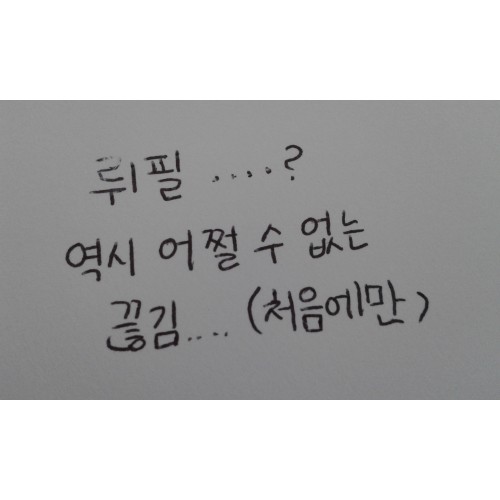 뤼필 .....?
역시 어쩔 수 없는
끊김.... (처음에만)